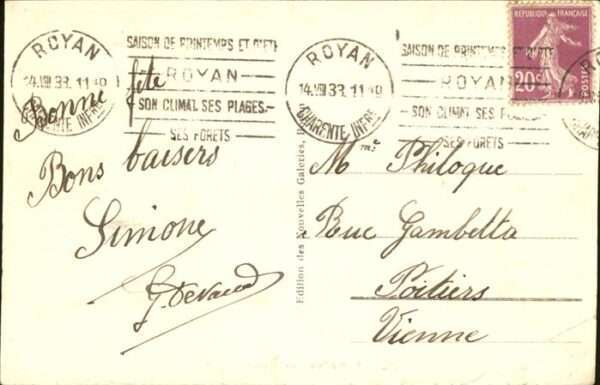 ROYAN
14.VIII 33. 11
CHARENTE INFRE
SAISON DE PRINTEMPS ET D'ETE
ROYAN
SON CLIMAT SES PLAGES
SES FORETS
ROYAN
14.VIII 33. 11
CHARENTE INFRE
SAISON DE PRINTEMPS ET D'ETE
ROYAN
SON CLIMAT SES PLAGES
SES FORETS
REPUBLIQUE FRANÇAISE
20c
POSTES
Bonne fête
Bons baisers
Simone
Edition des Nouvelles Galeries,
Mme Philoque
Rue Gambetta
Poitiers
Vienne